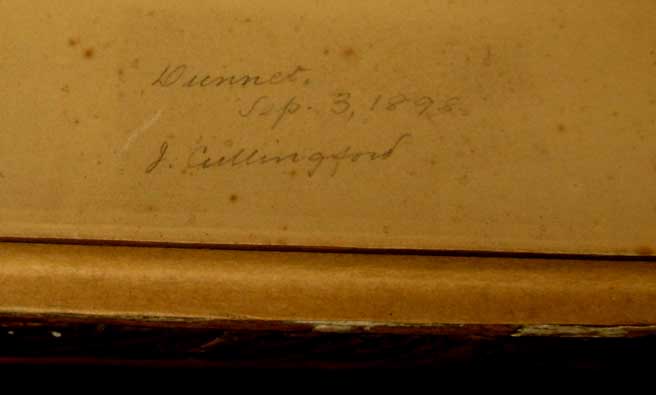 Dunnet.
Sep. 3, 1898.
J. Cullingford